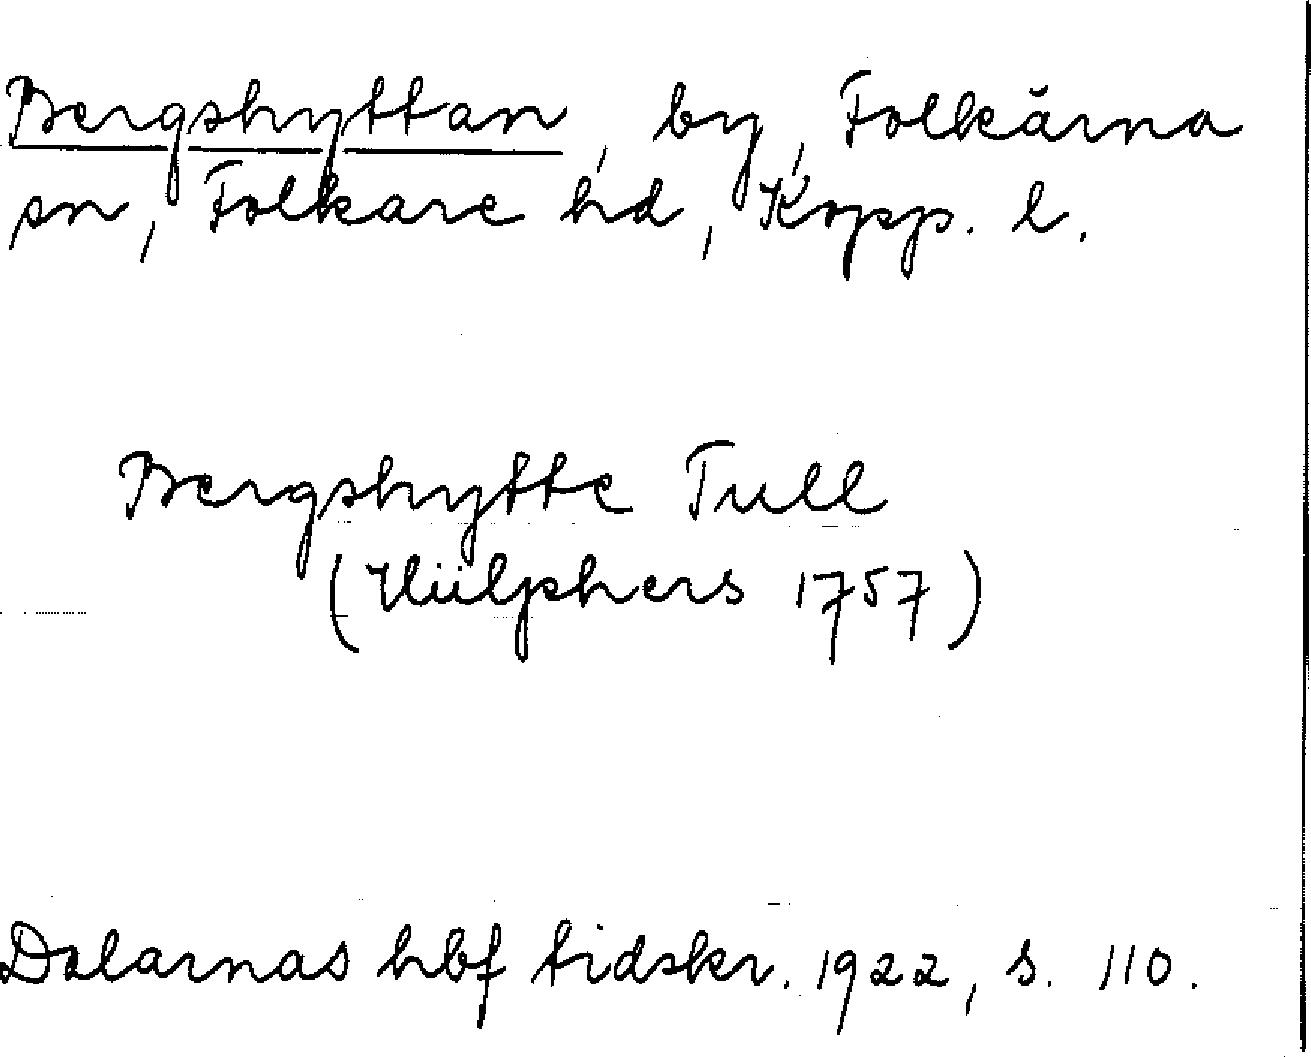 Bergshyttan, by, Folkärna
sn, Folkare hd, Kopp. l.
Bergshytte Tull
(Hülphers 1757)
Dalarnas hbf tidskr. 1922, s. 110.